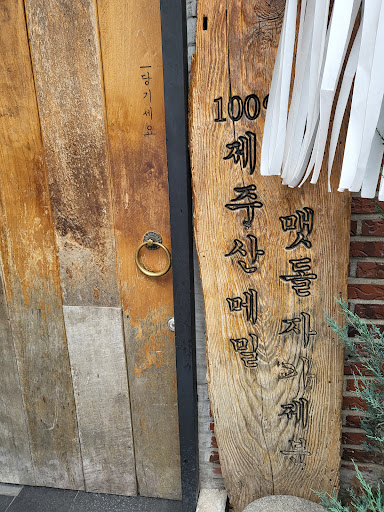 당기세요
100%
제주산 메밀
맷돌 자가제분